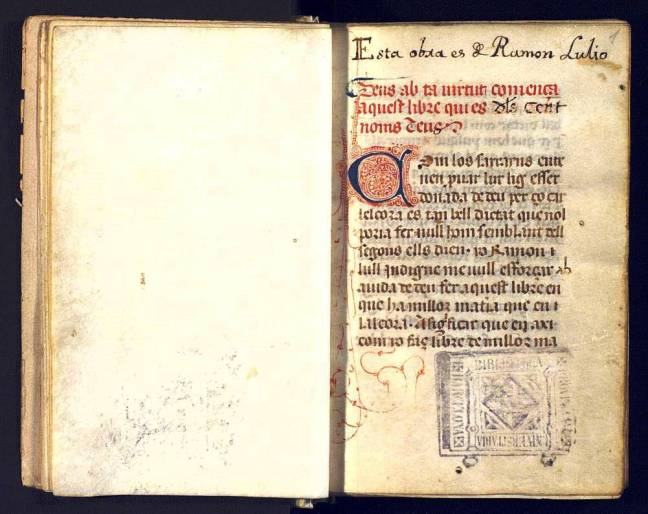 1
Esta obra es de Ramon Lulio
Deus ab ta uirtut comença
aquest libre qui es dls Cent
noms Deus
Com los sarrains ente
nen puar lur lig esser
donada de deu per ço car
lalcora es tan bell dictat que nol
poria fer null hom semblant dell
segons ells dien · io Ramon ·
lull indigne me vull esforçar ab
aiuda de deu fer aquest libre en
que ha millor matia que en
lalcora · A significar que en axi
com io faç libre de millor ma